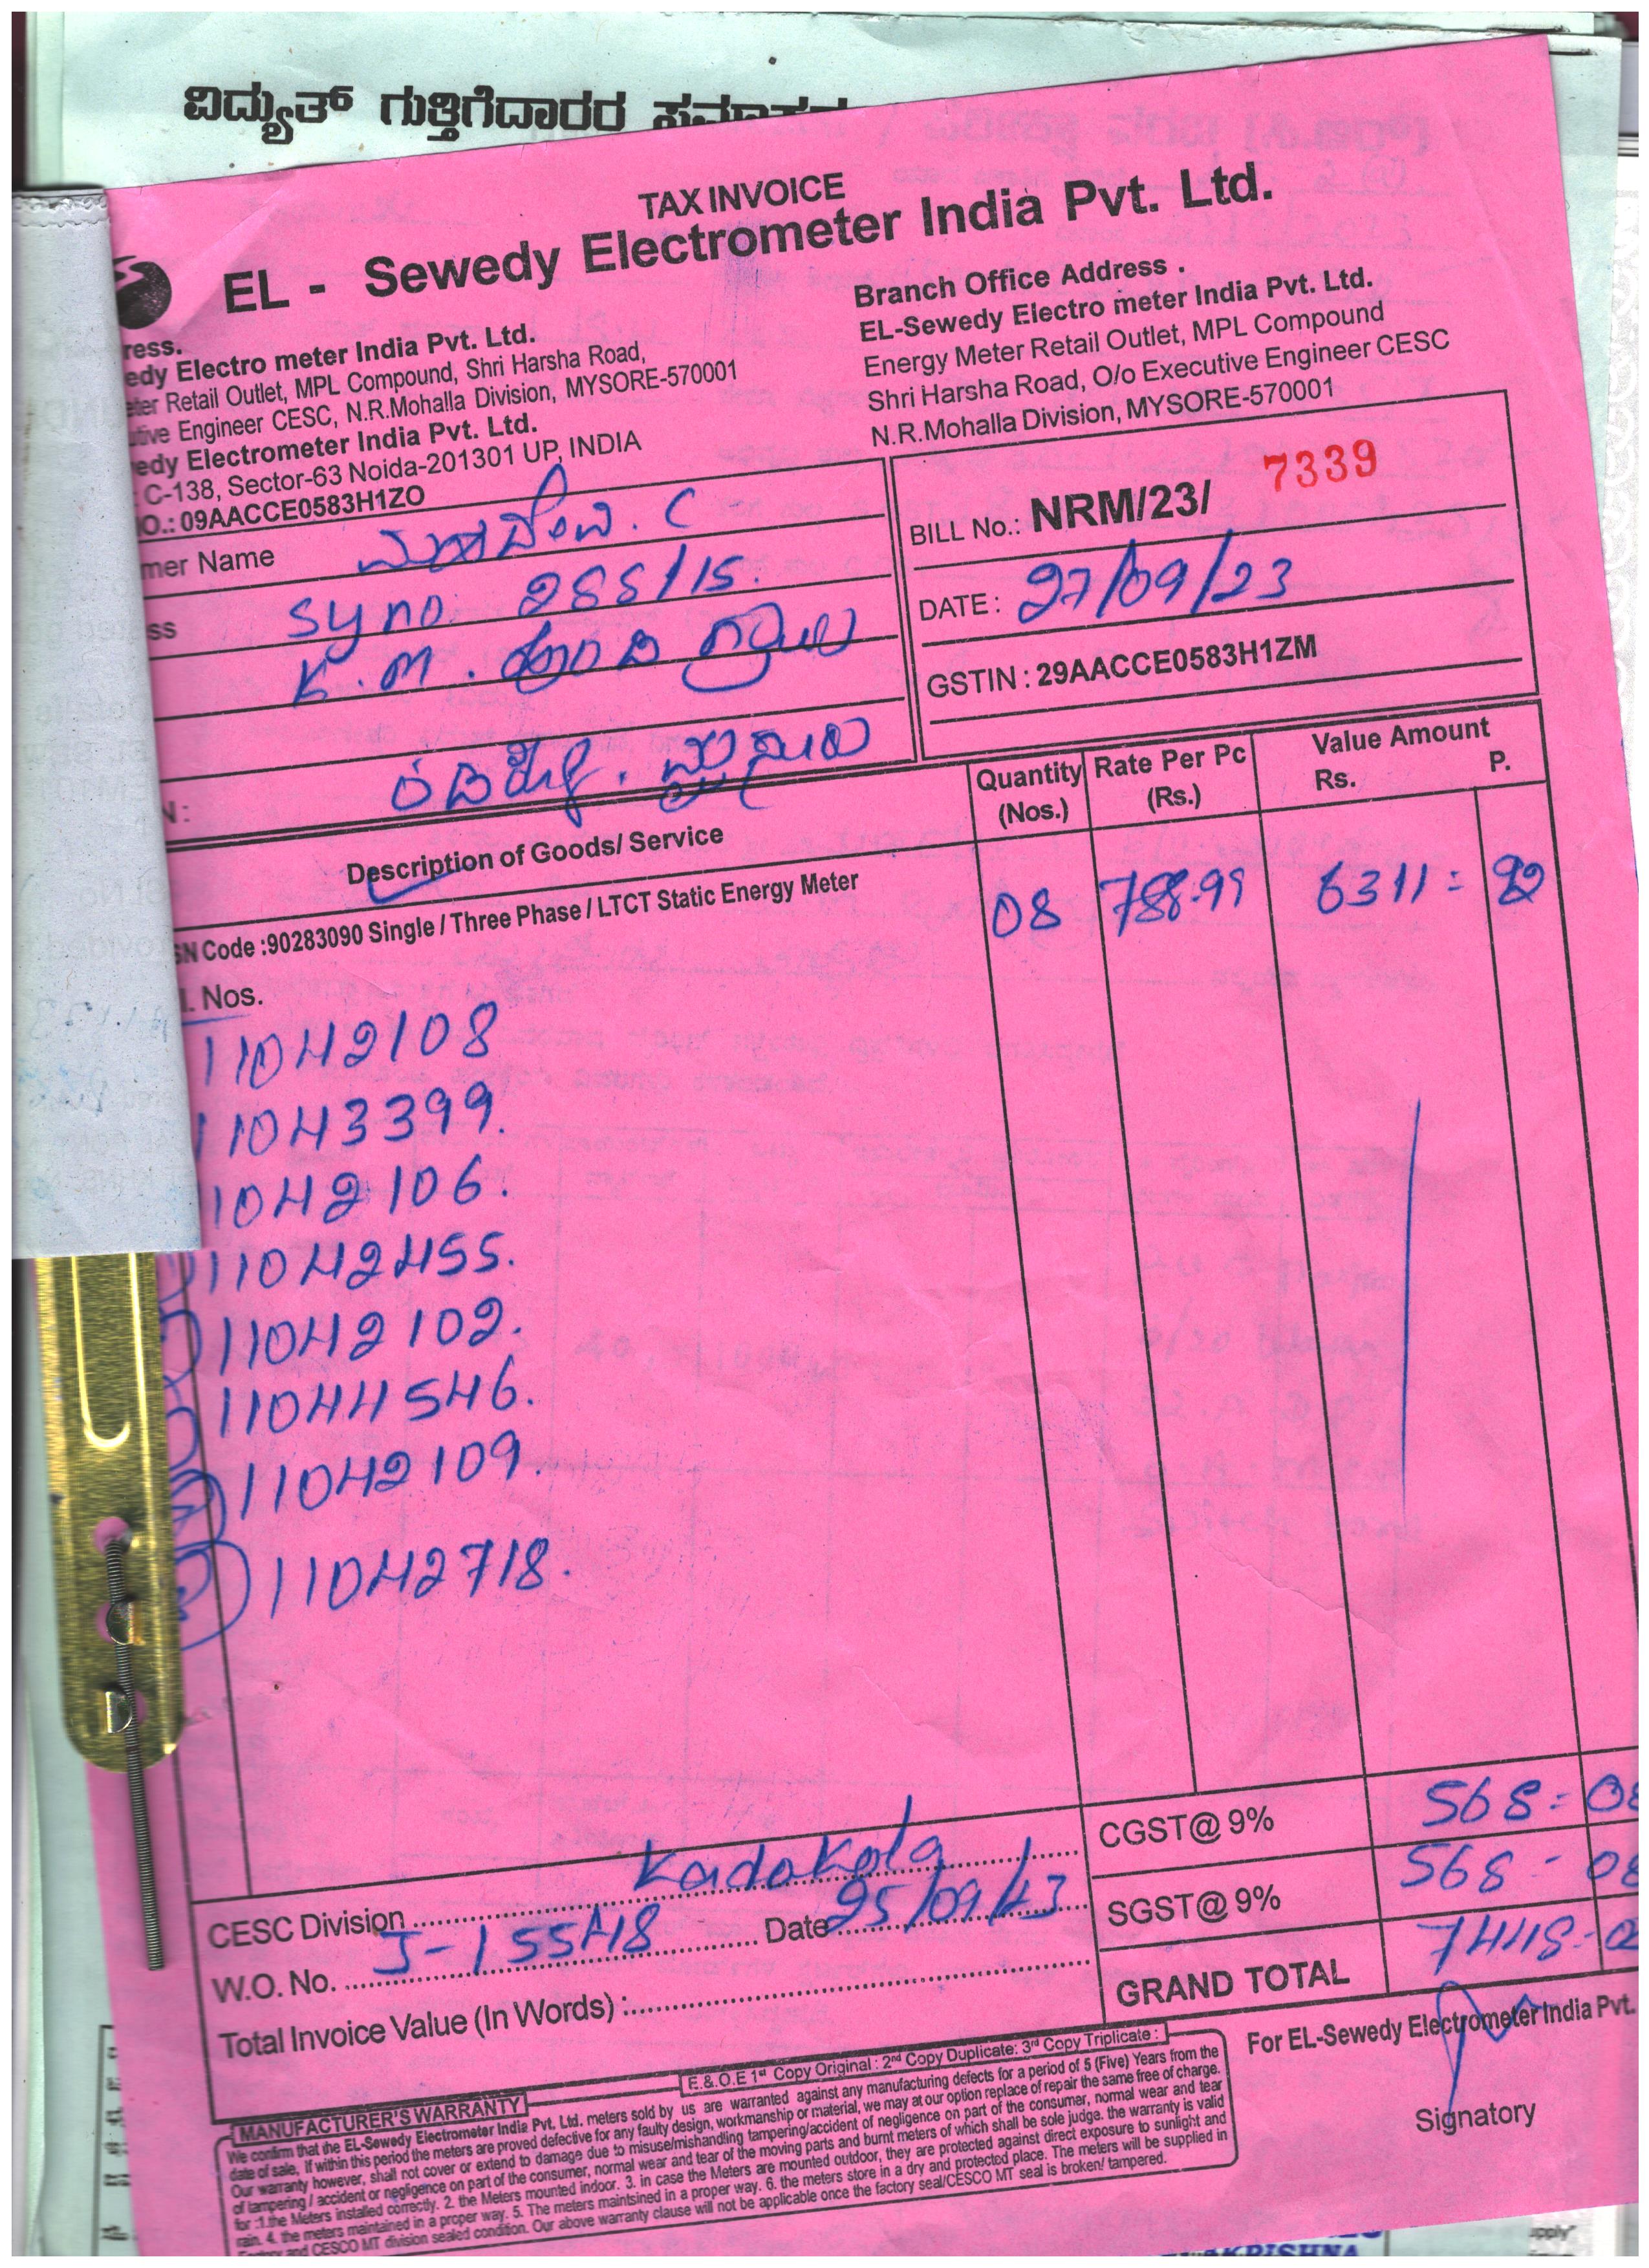 ವಿದ್ಯುತ್ ಗುತ್ತಿಗೆದಾರರ
TAX INVOICE
EL - Sewedy Electrometer India Pvt. Ltd.
ress.
edy Electro meter India Pvt. Ltd.
eter Retail Outlet, MPL Compound, Shri Harsha Road,
utive Engineer CESC, N.R.Mohalla Division, MYSORE-570001
edy Electrometer India Pvt. Ltd.
C-138, Sector-63 Noida-201301 UP, INDIA
O.: 09AACCE0583H1ZO
Branch Office Address .
EL-Sewedy Electro meter India Pvt. Ltd.
Energy Meter Retail Outlet, MPL Compound
Shri Harsha Road, O/o Executive Engineer CESC
N.R.Mohalla Division, MYSORE-570001
mer Name ಮಹದೇವ . C
ss Sy no. 288/15.
K . M .
N :
BILL No.: NRM/23/ 7339
DATE : 27/09/23
GSTIN : 29AACCE0583H1ZM
Description of Goods/ Service
Quantity (Nos.)
Rate Per Pc (Rs.)
Value Amount
Rs. P.
SN Code :90283090 Single / Three Phase / LTCT Static Energy Meter 08 788.99 6311 = 92
l. Nos.
11042108
11043399.
11042106.
11042455.
11042102.
11044546.
11042109.
11042718.
CGST@ 9% 568 = 08
SGST@ 9% 568 - 08
GRAND TOTAL 7448 - 0
CESC Division Kadakola
W.O. No. J-15548 Date 25/09/23
Total Invoice Value (In Words) :
For EL-Sewedy Electrometer India Pvt.
Signatory
E.&.O.E 1st Copy Original : 2nd Copy Duplicate: 3rd Copy Triplicate :
MANUFACTURER'S WARRANTY
We confirm that the EL-Sewedy Electrometer India Pvt. Ltd. meters sold by us are warranted against any manufacturing defects for a period of 5 (Five) Years from the
date of sale, If within this period the meters are proved defective for any faulty design, workmanship or material, we may at our option replace of repair the same free of charge.
Our warranty however, shall not cover or extend to damage due to misuse/mishandling tampering/accident of negligence on part of the consumer, normal wear and tear
of tampering / accident or negligence on part of the consumer, normal wear and tear of the moving parts and burnt meters of which shall be sole judge. the warranty is valid
for :1.the Meters installed correctly. 2. the Meters mounted indoor. 3. in case the Meters are mounted outdoor, they are protected against direct exposure to sunlight and
rain. 4. the meters maintained in a proper way. 5. The meters maintsined in a proper way. 6. the meters store in a dry and protected place. The meters will be supplied in
Factory and CESCO MT division sealed condition. Our above warranty clause will not be applicable once the factory seal/CESCO MT seal is broken/ tampered.